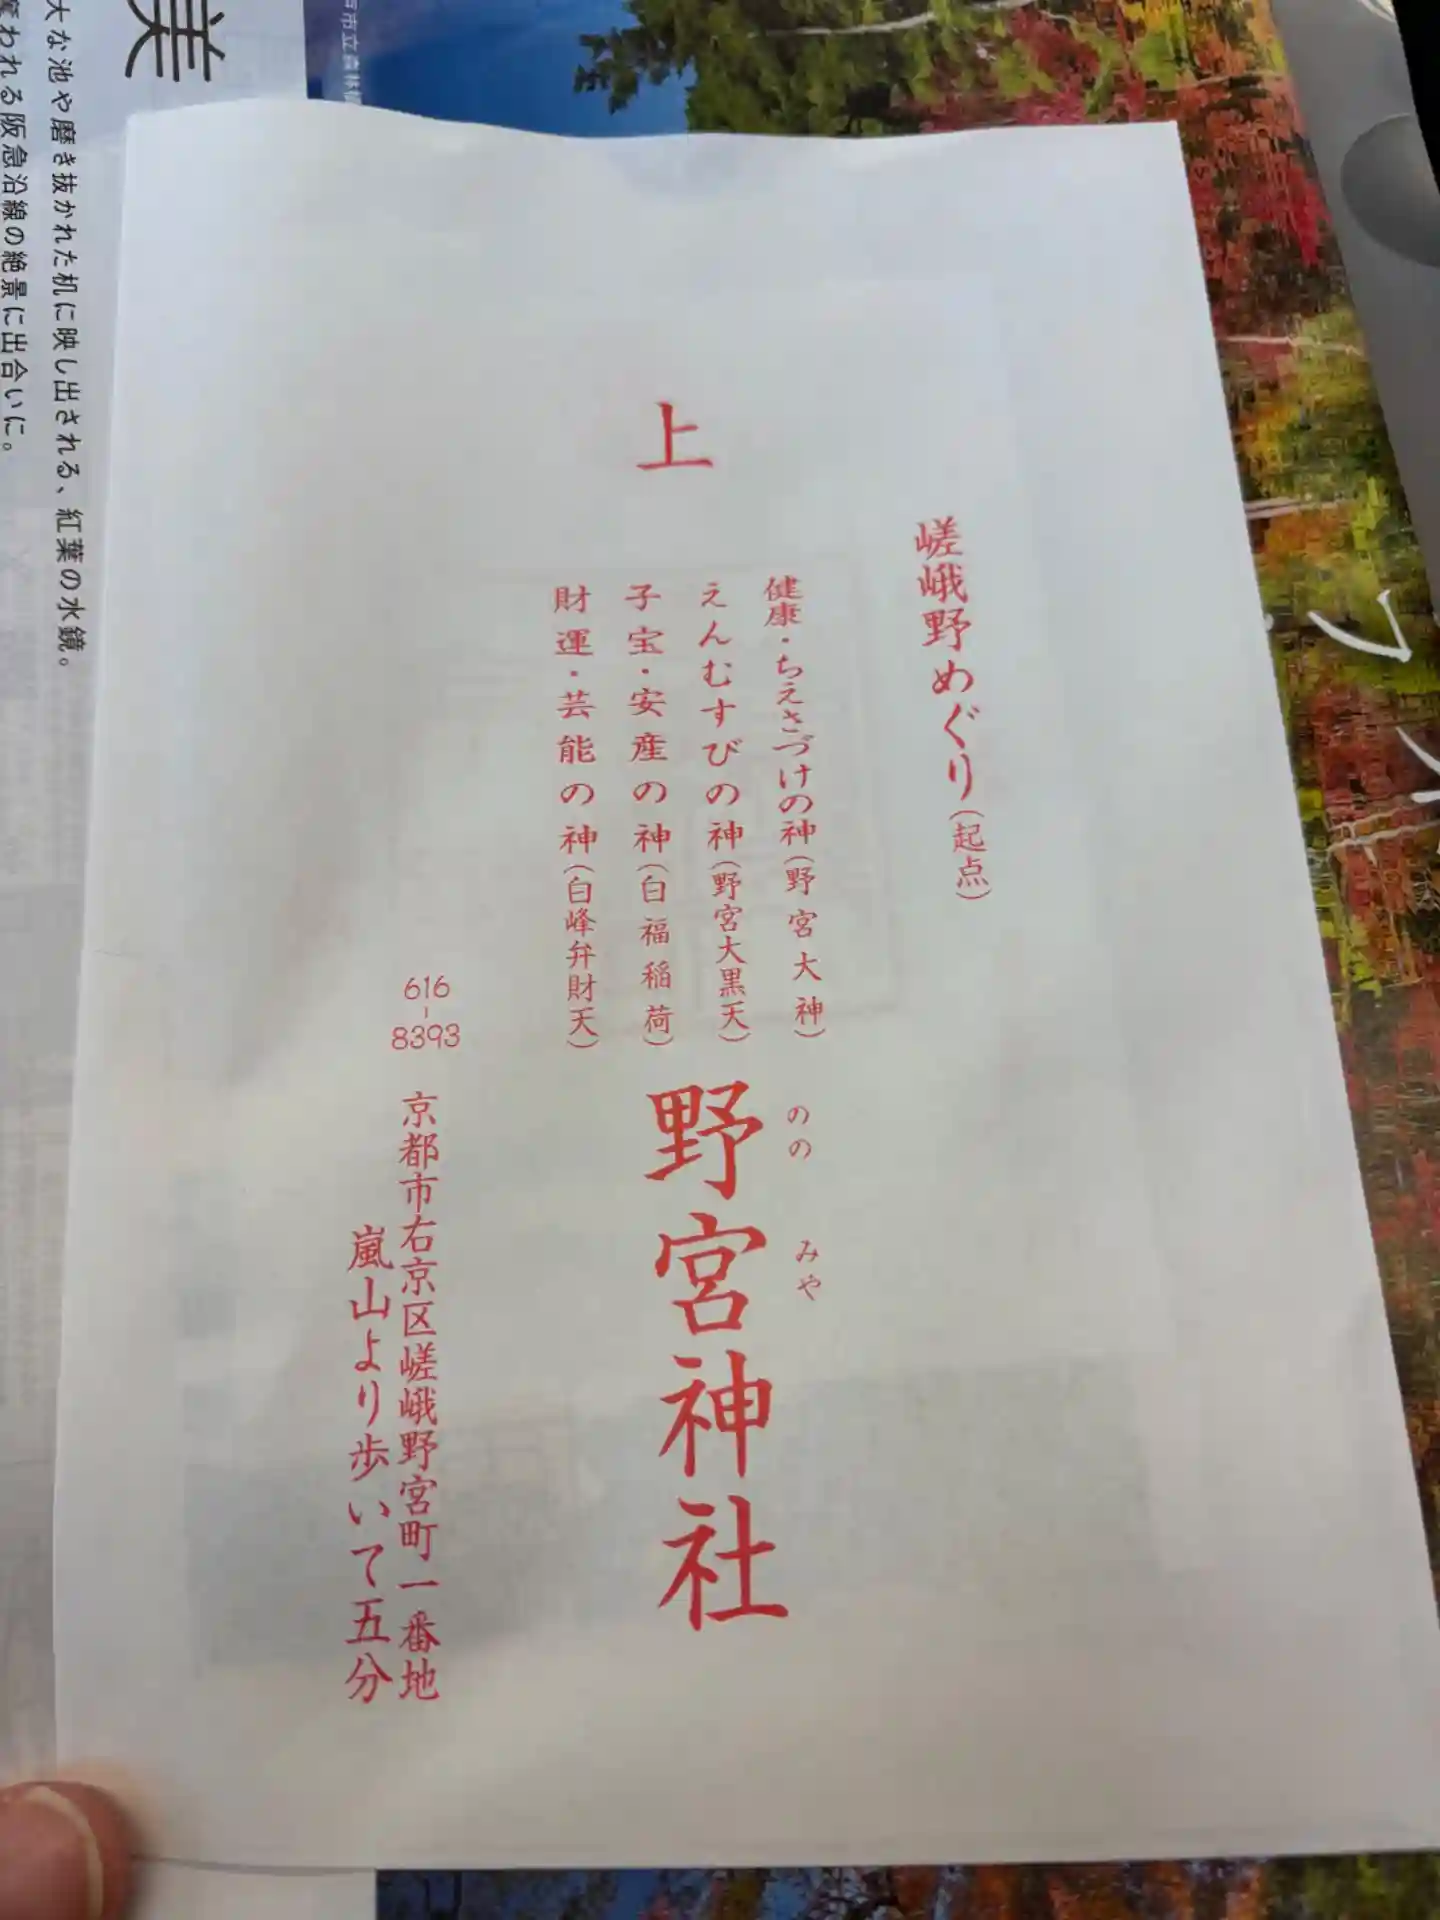 嵯峨野めぐり(起点)
上
健康・ちえさづけの神(野宮大神)
えんむすびの神(野宮大黒天)
子宝・安産の神(白福稲荷)
財運・芸能の神(白峰弁財天)
ののみや
野宮神社
616-8393
京都市右京区嵯峨野宮町一番地
嵐山より歩いて五分
美
大な池や磨き抜かれた机に映し出される、紅葉の水鏡。
われる阪急沿線の絶景に出合いに。
市立森林